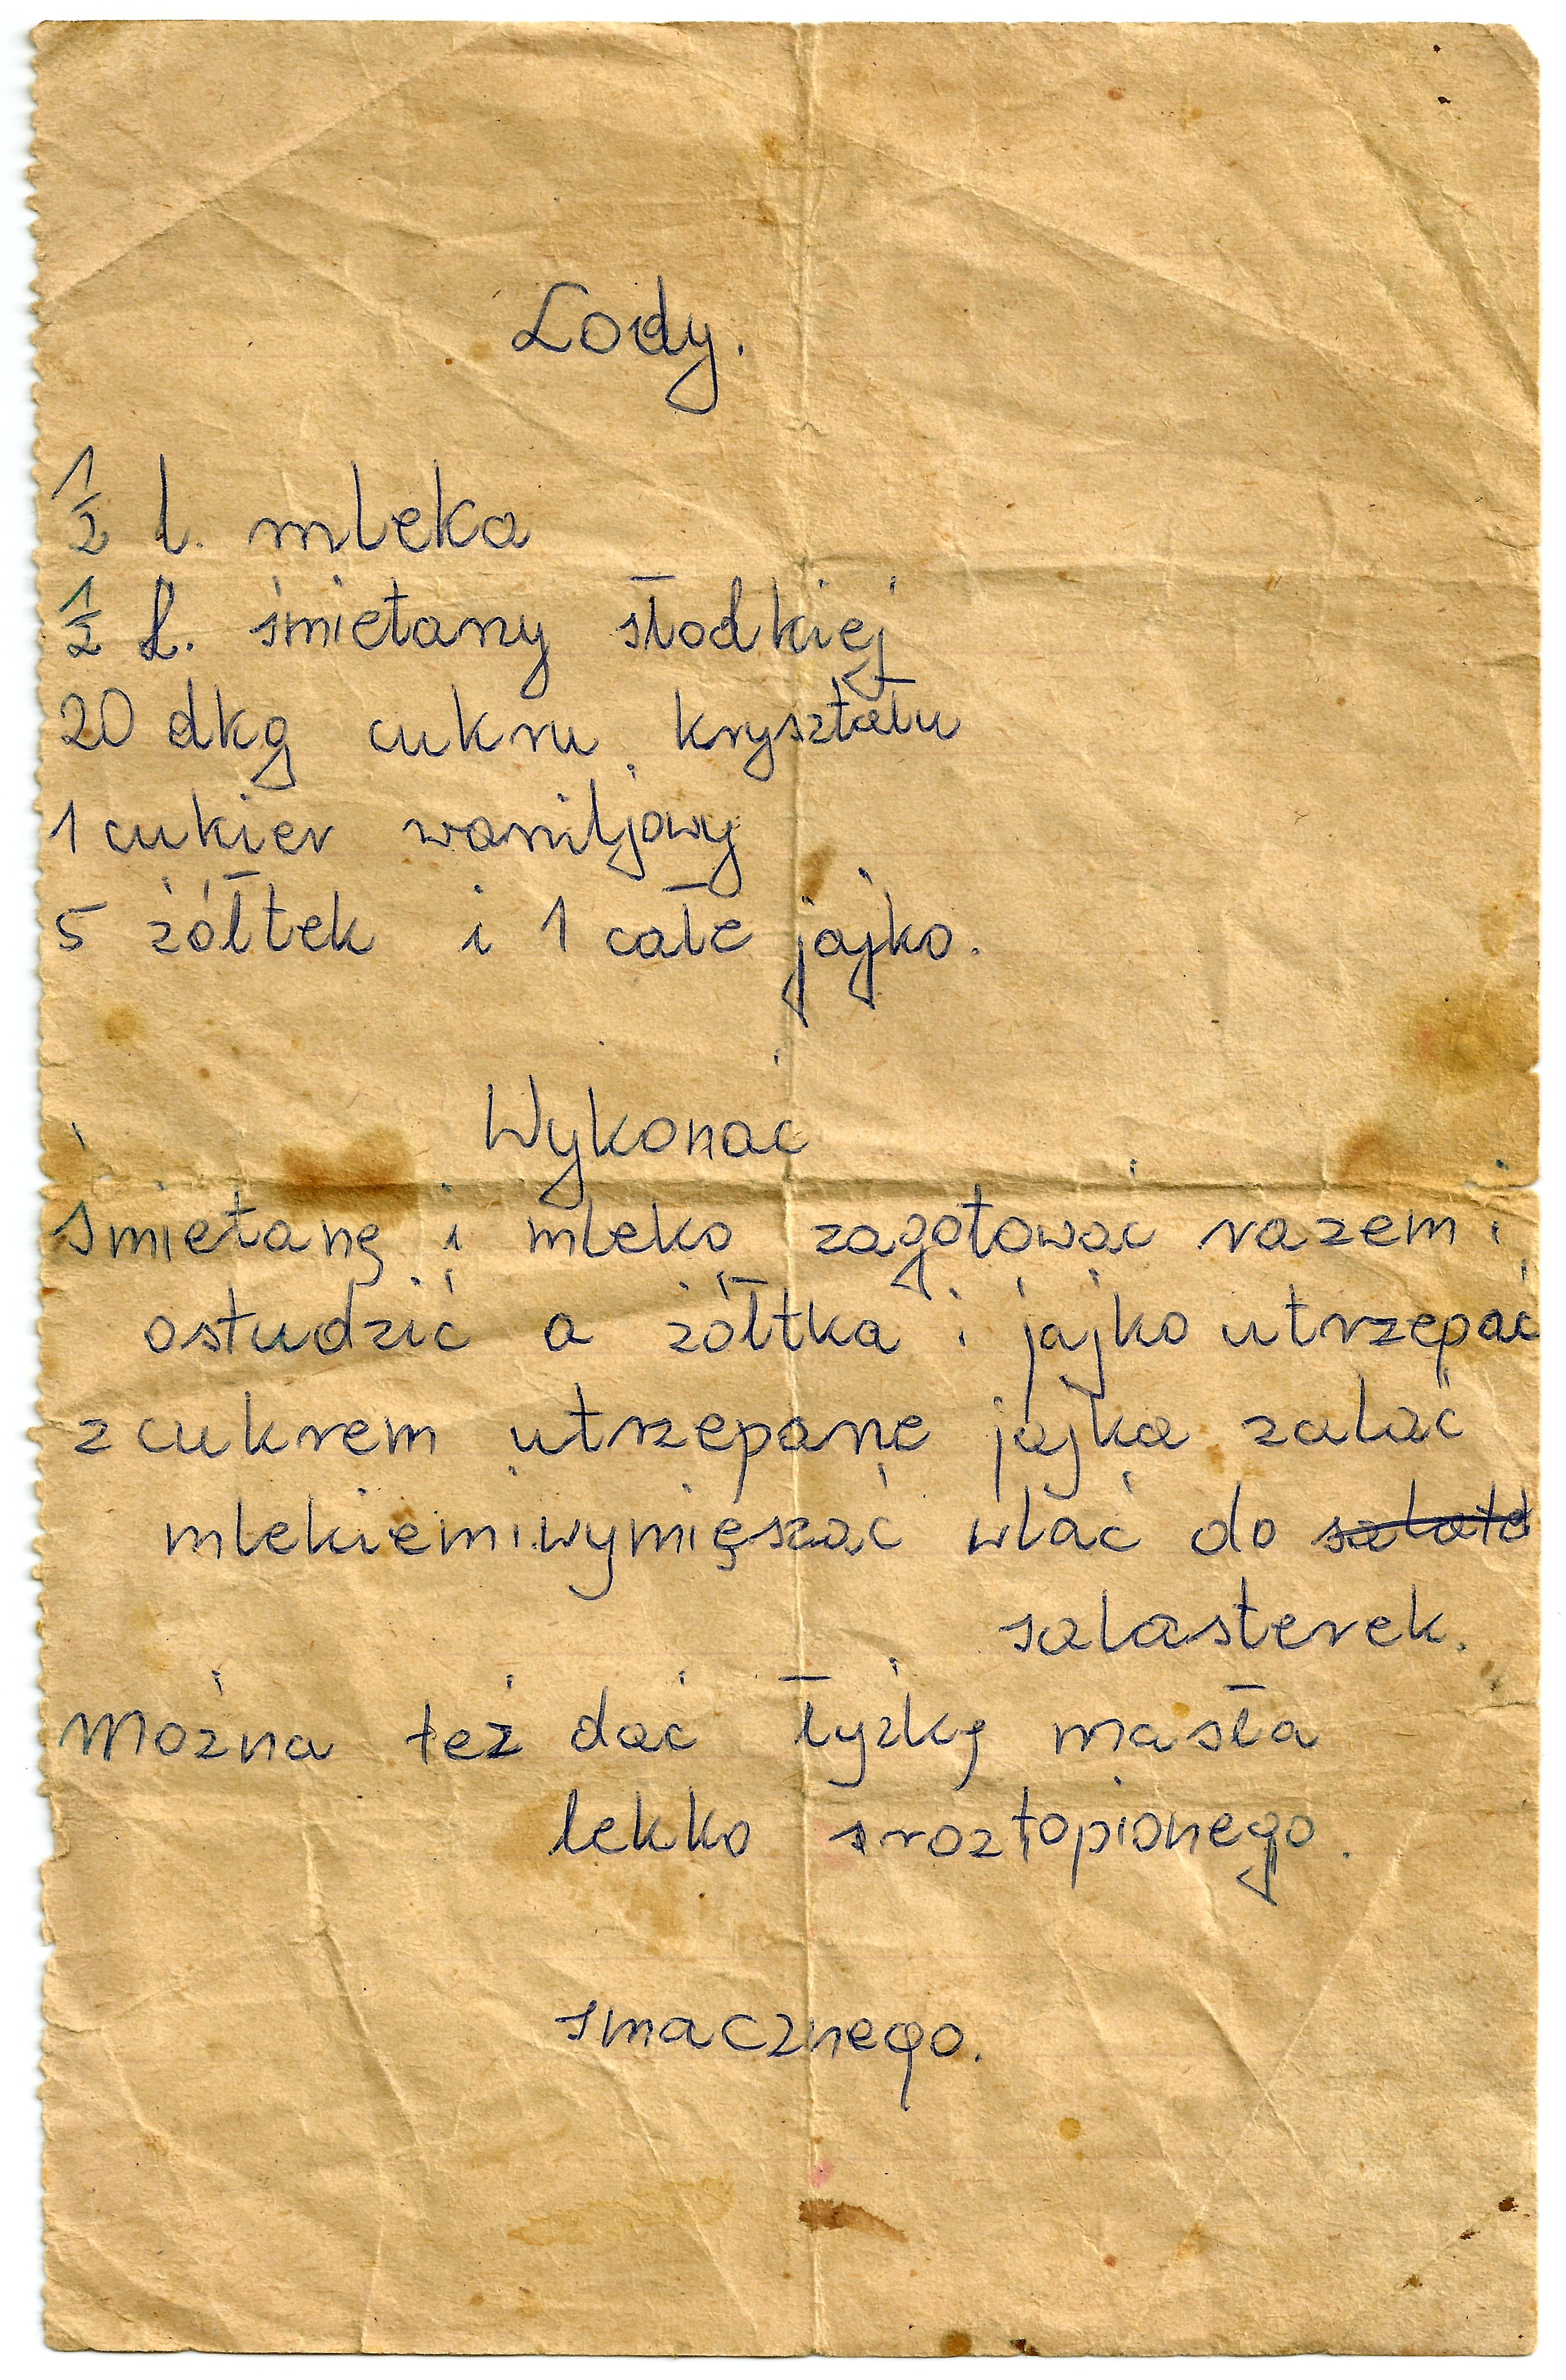 Lody.
1/2 l. mleka
1/2 l. śmietany słodkiej
20 dkg cukru kryształu
1 cukier waniljowy
5 żółtek i 1 całe jajko.
Wykonać
śmietanę i mleko zagotować razem i
ostudzić a żółtka i jajko utrzepać
z cukrem utrzepane jajka zalać
mlekiem i wymięszać wlać do
salasterek.
Można też dać łyżkę masła
lekko sroztopionego.
smacznego.